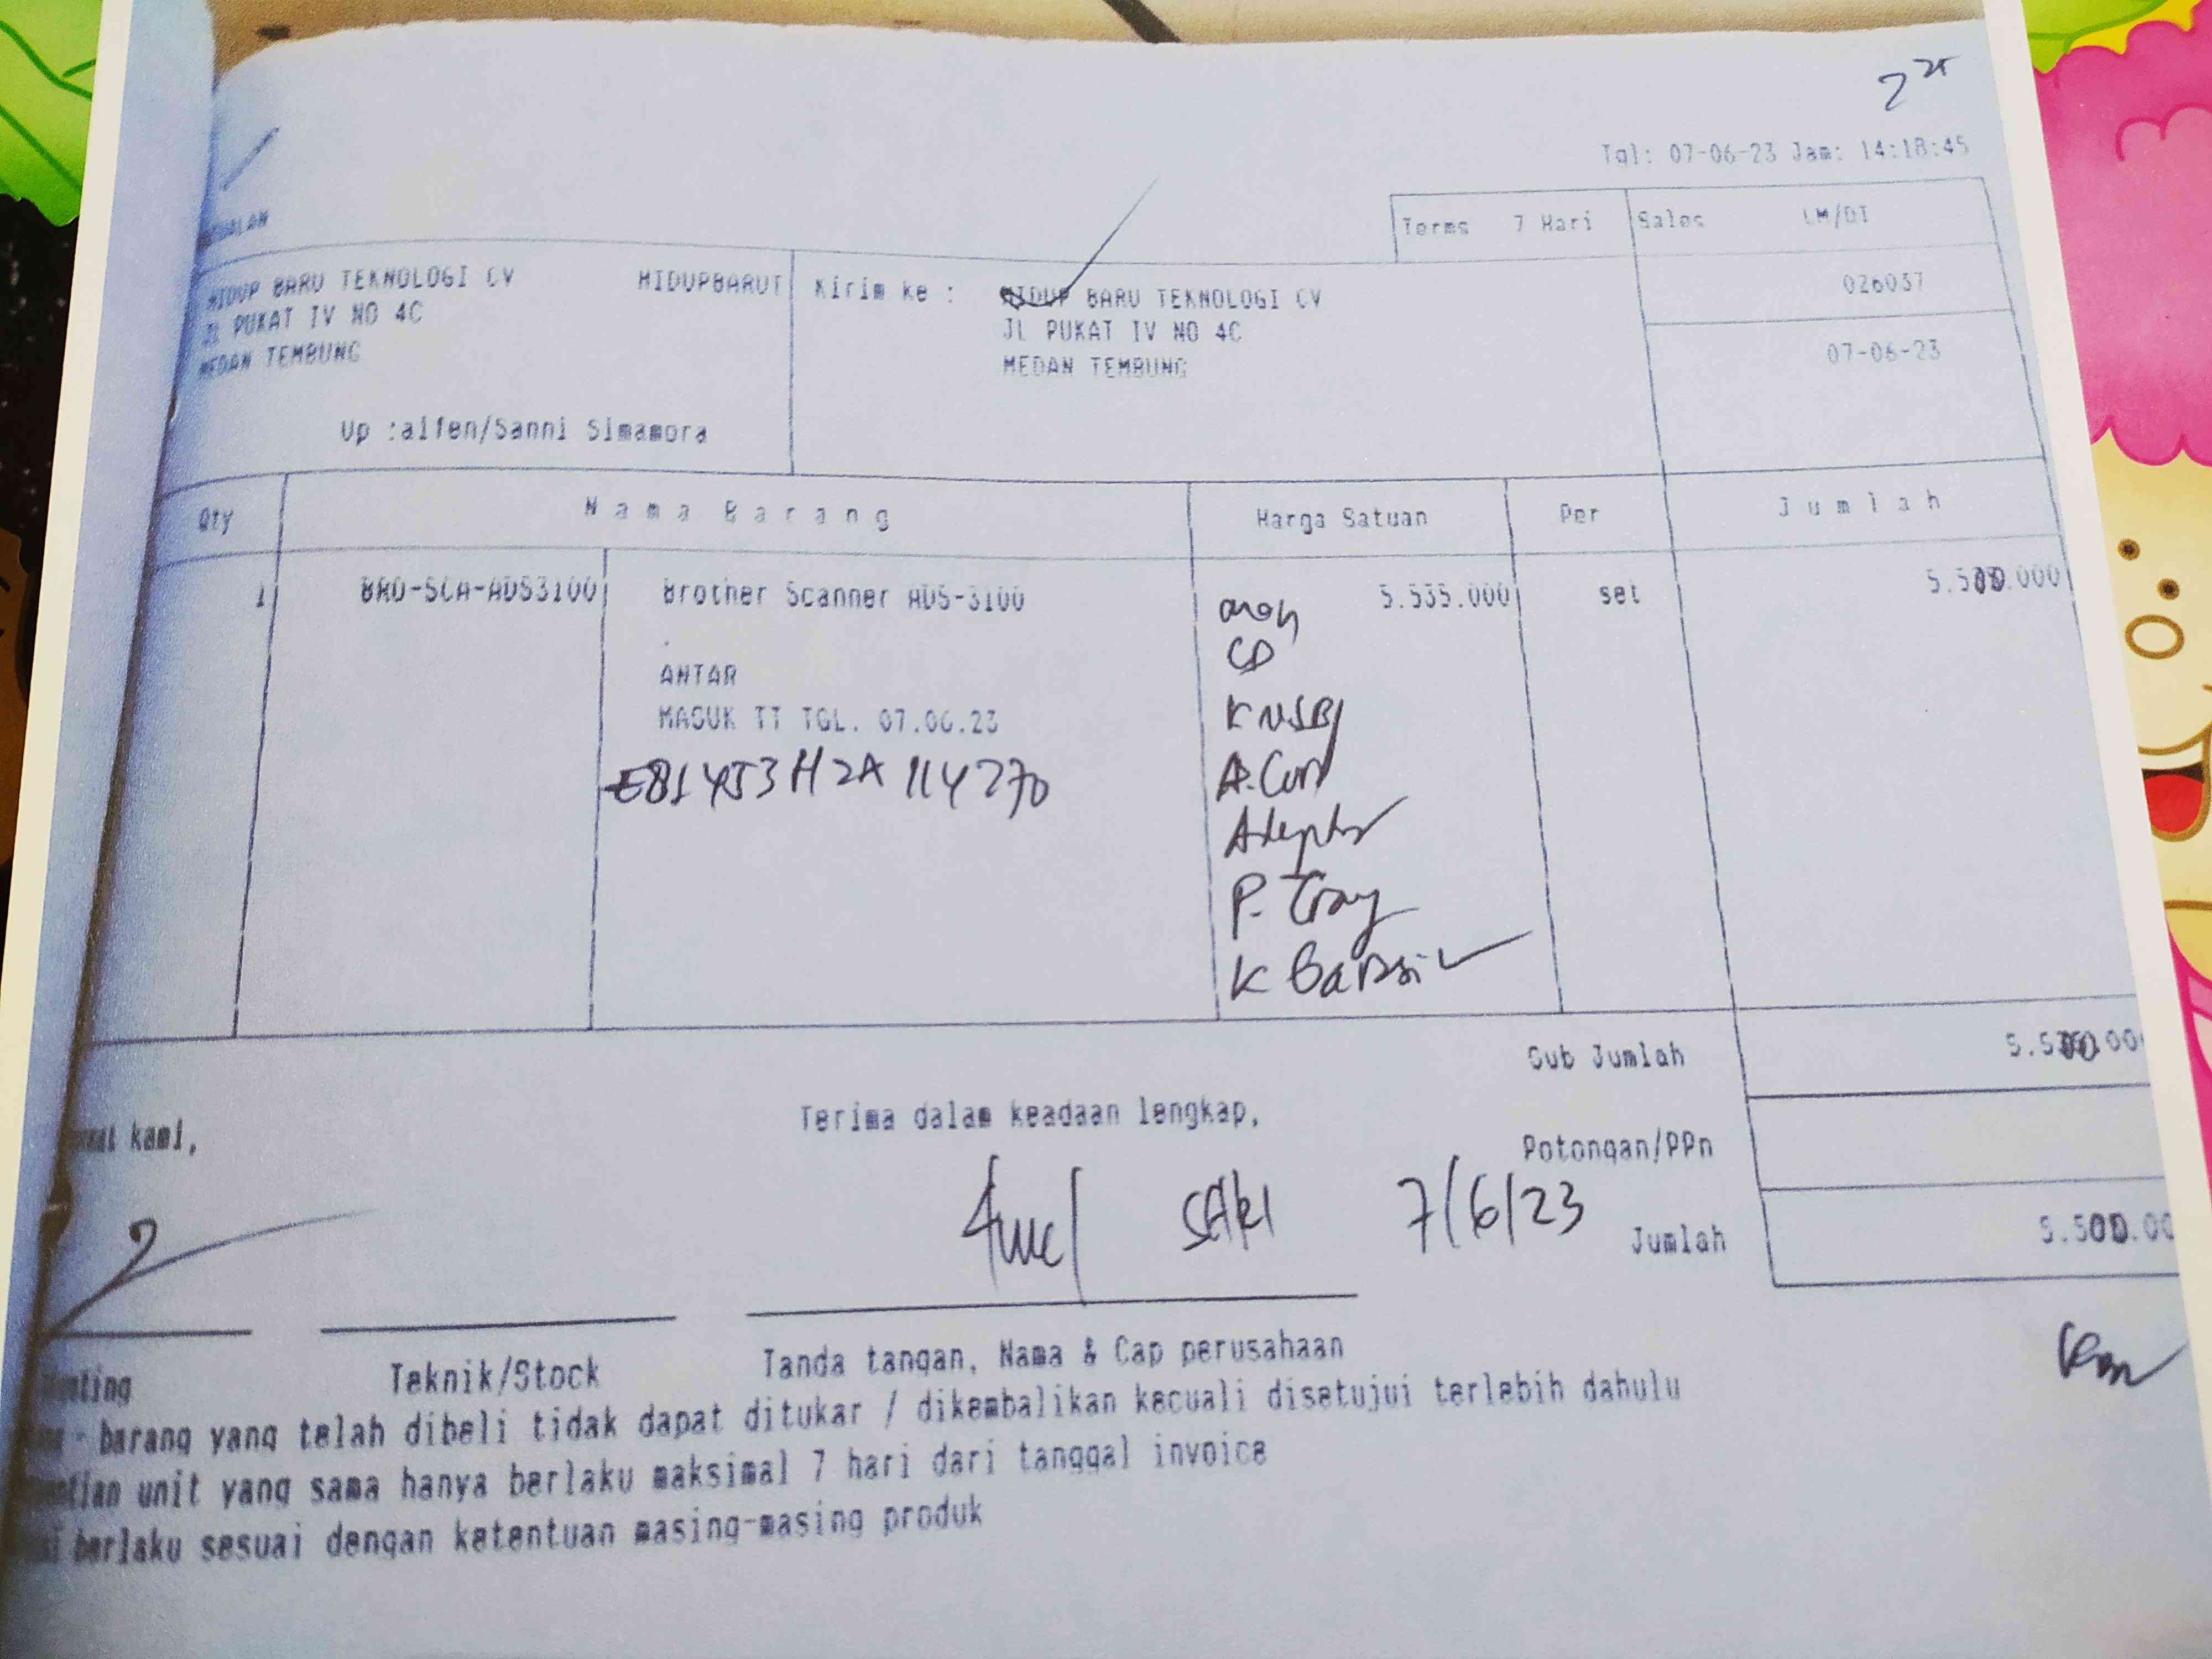 Tgl: 07-06-23 Jam: 14:18:45
Terms 7 Hari Sales LM/DI
HIDUP BARU TEKNOLOGI CV HIDUPBARUT Kirim ke : HIDUP BARU TEKNOLOGI CV 026037
JL PUKAT IV NO 4C JL PUKAT IV NO 4C
MEDAN TEMBUNG MEDAN TEMBUNG 07-06-23
Up :alfen/Sanni Simamora
Qty Nama Barang Harga Satuan Per Jumlah
1 BRO-SCA-ADS3100 Brother Scanner ADS-3100 5.535.000 set 5.500.000
CD
ANTAR
MASUK TT TGL. 07.06.23 K USB
E81453H2A114270
Adeptor
P. Tray
K Garansi
Sub Jumlah
kami, Terima dalam keadaan lengkap,
Potongan/PPn
SAKI 7/6/23
Jumlah 5.500.00
Teknik/Stock Tanda tangan, Nama & Cap perusahaan
- barang yang telah dibeli tidak dapat ditukar / dikembalikan kecuali disetujui terlebih dahulu
unit yang sama hanya berlaku maksimal 7 hari dari tanggal invoice
berlaku sesuai dengan ketentuan masing-masing produk